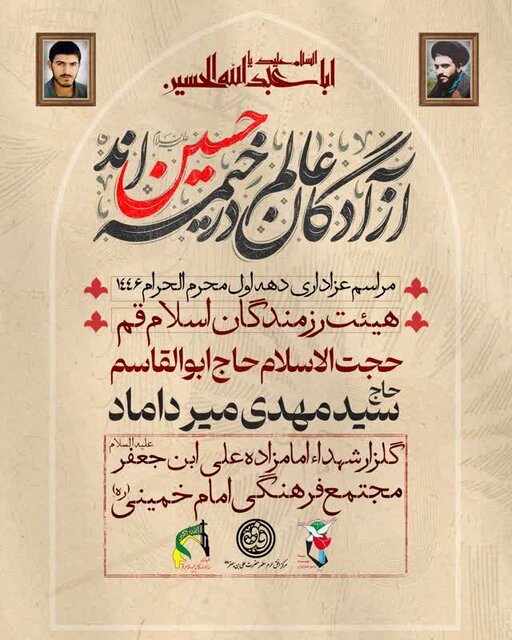 السلام علیک یا
اباعبدالله الحسین
آزادگان عالم در خیمه حسین علیه السلام اند
مراسم عزاداری دهه اول محرم الحرام ۱۴۴۶
هیئت رزمندگان اسلام قم
حجت الاسلام حاج ابوالقاسم
حاج سید مهدی میرداماد
گلزار شهداء امامزاده علی ابن جعفر علیه السلام
مجتمع فرهنگی امام خمینی (ره)